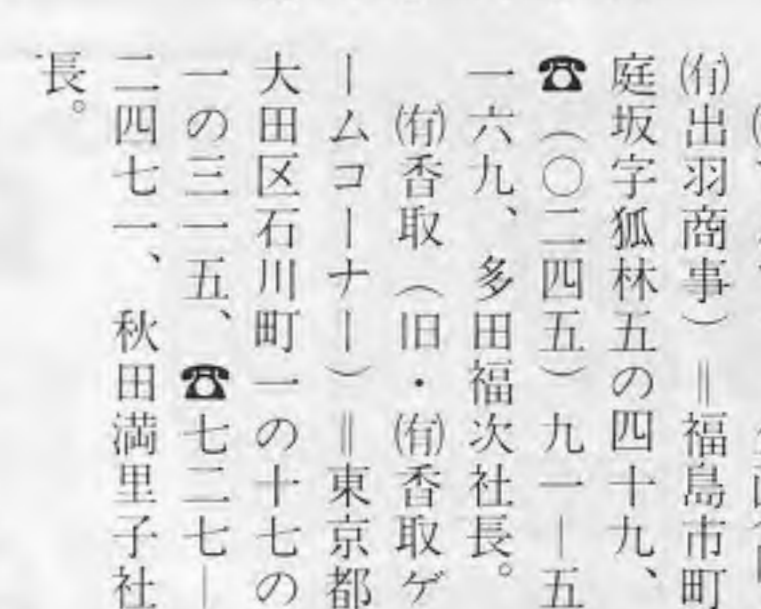 ㈲出羽商事）＝福島市町
庭坂字狐林五の四十九、
☎（〇二四五）九一―五
一六九、多田福次社長。
㈲香取（旧・㈲香取ゲ
ームコーナー）＝東京都
大田区石川町一の十七の
一の三一五、☎七二七―
二四七一、秋田満里子社
長。